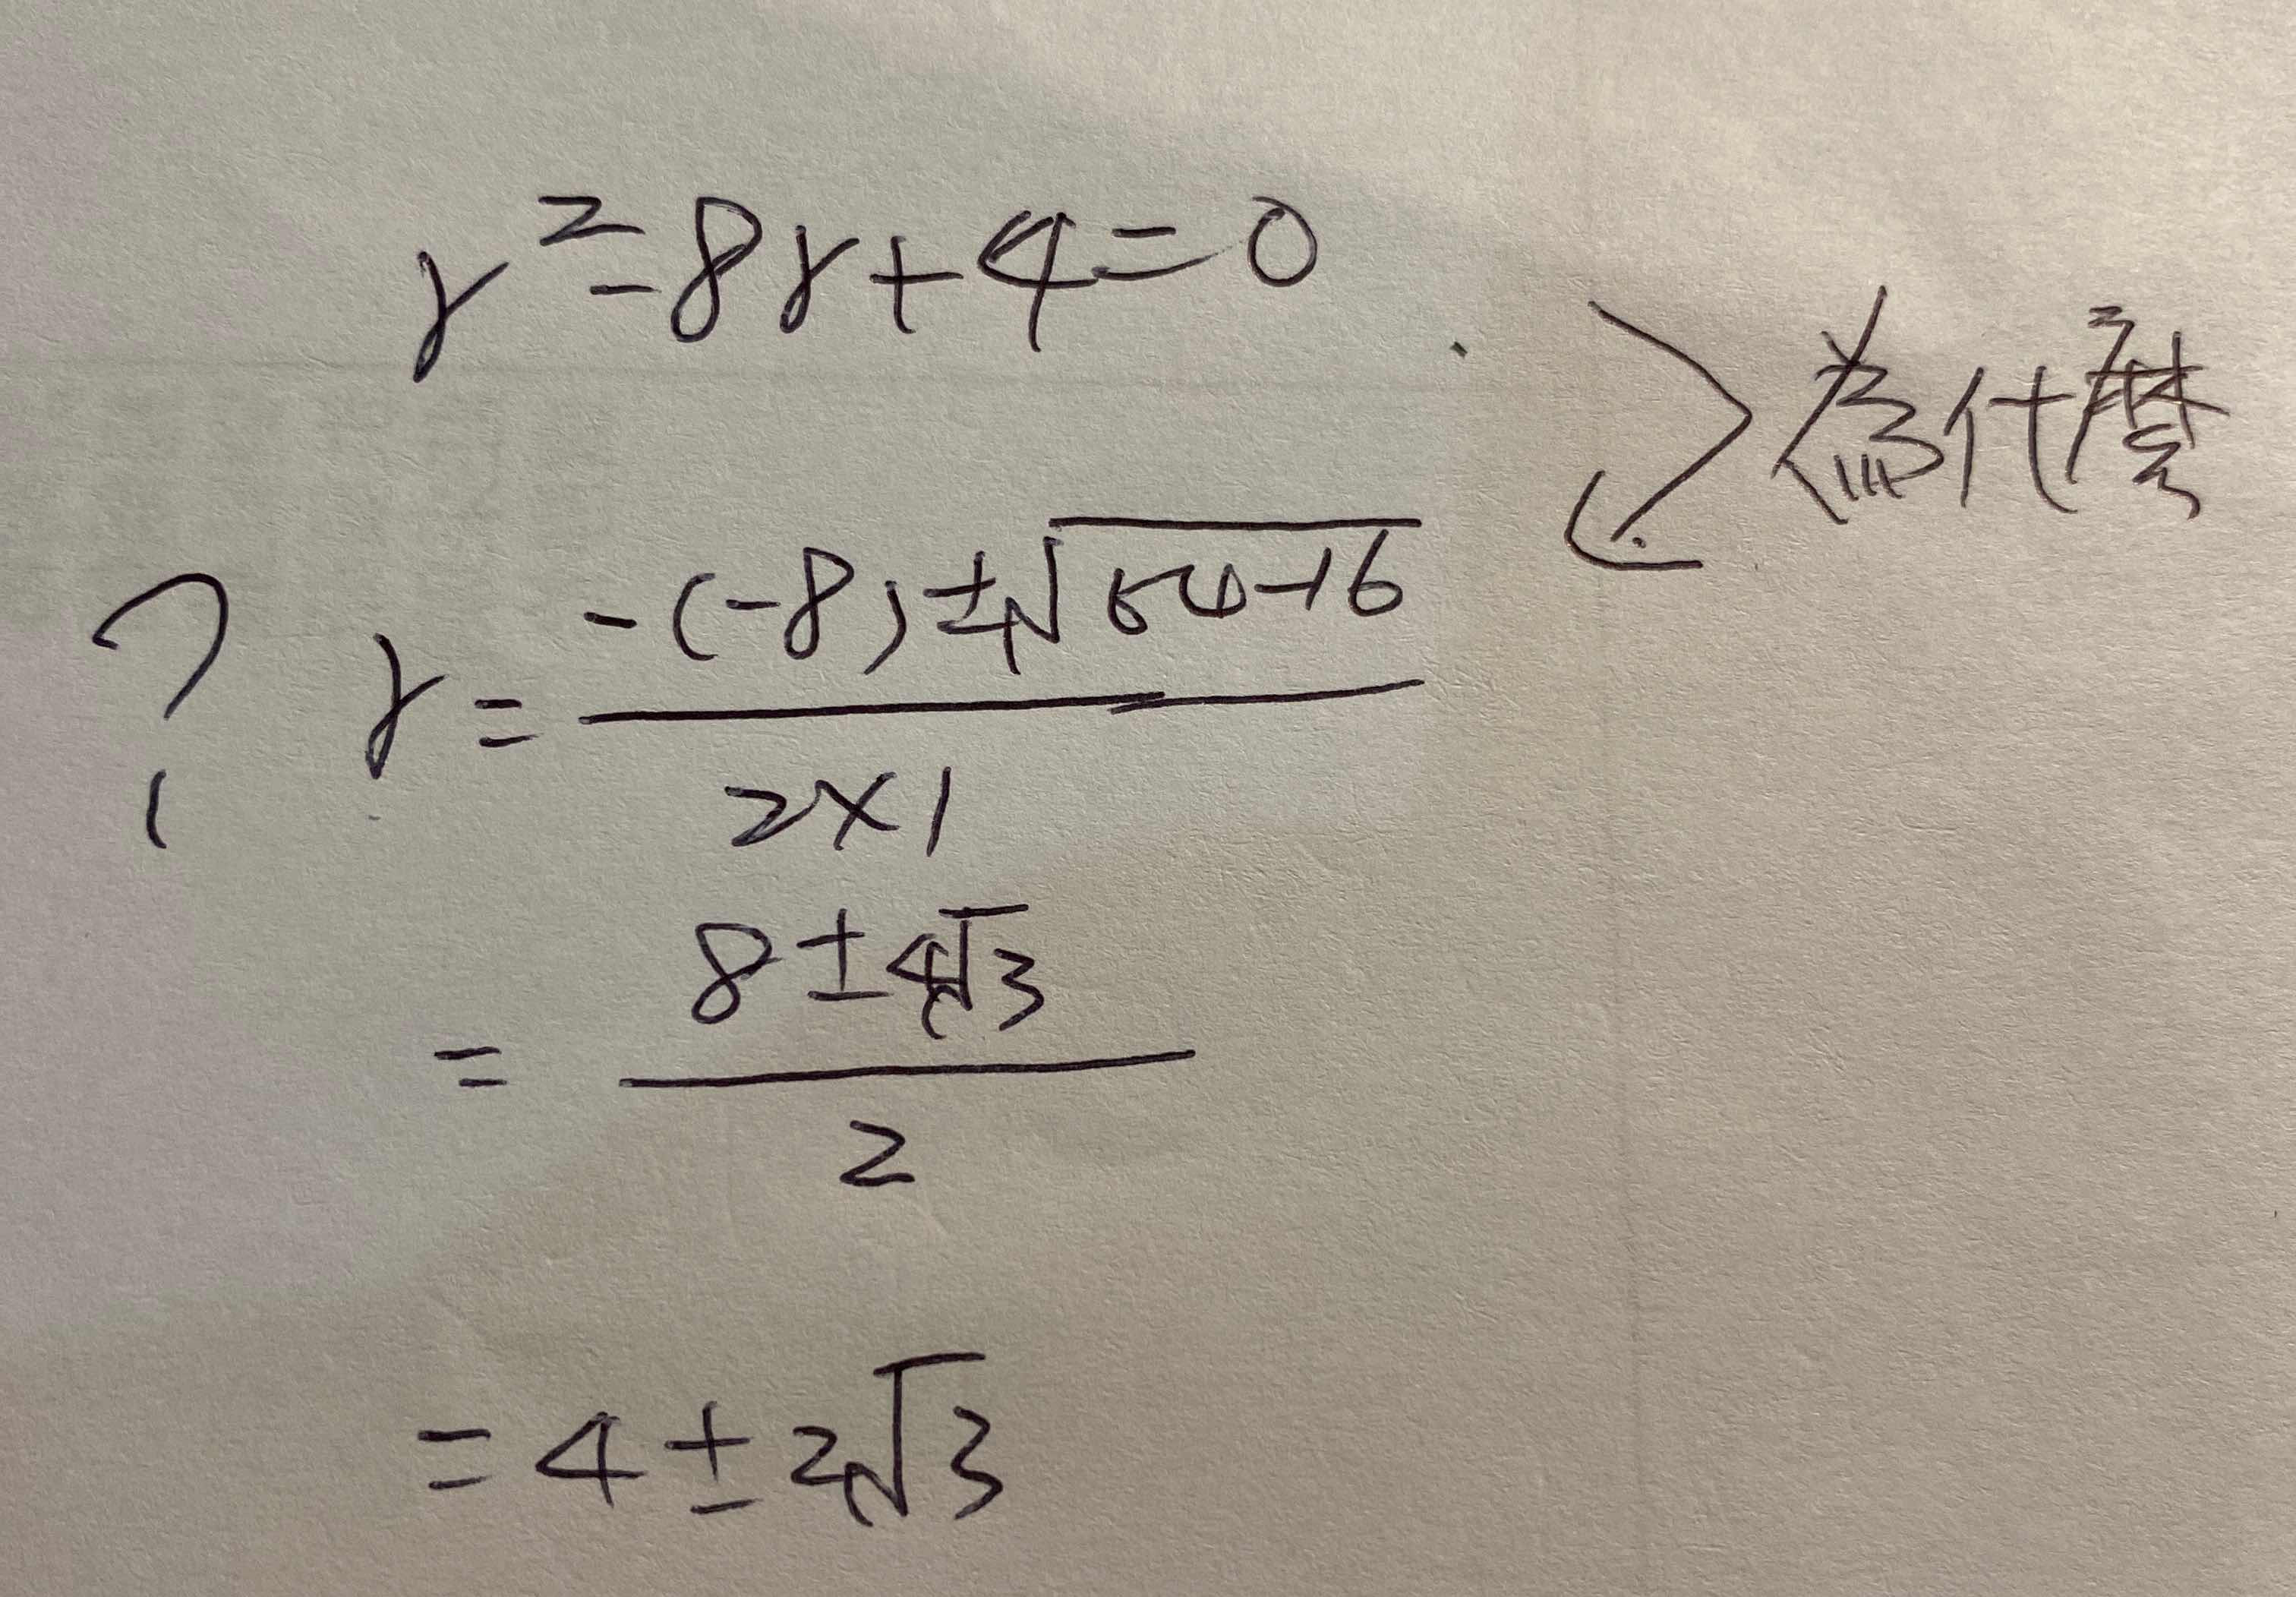 r²-8r+4=0
為什麼
? r = (-(-8)±√(64-16))/(2×1)
= (8±4√3)/2
= 4±2√3